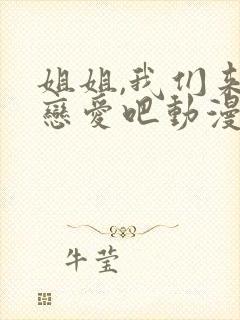 姐姐,我们来
戀愛吧動漫
牛莹